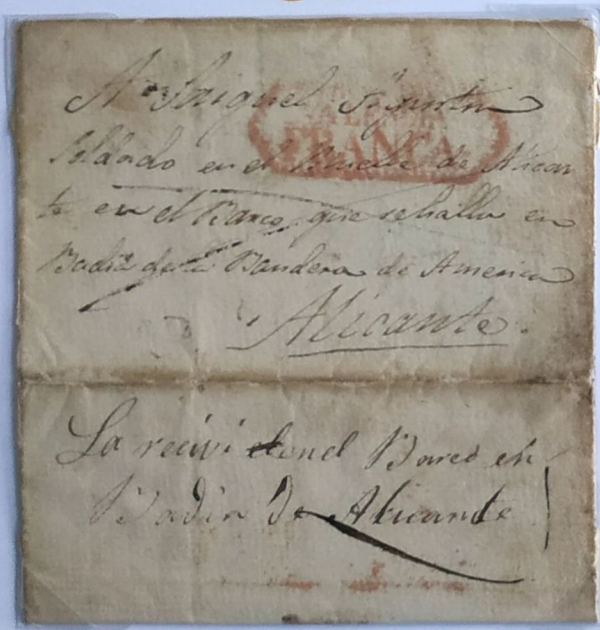 A Miguel
FRANCA
Soldado en el Muelle de Alican
te en el Barco, que se halla en
Badia de la Bandera de America
Alicante
La recivi en el Barco en
Badia de Alicante